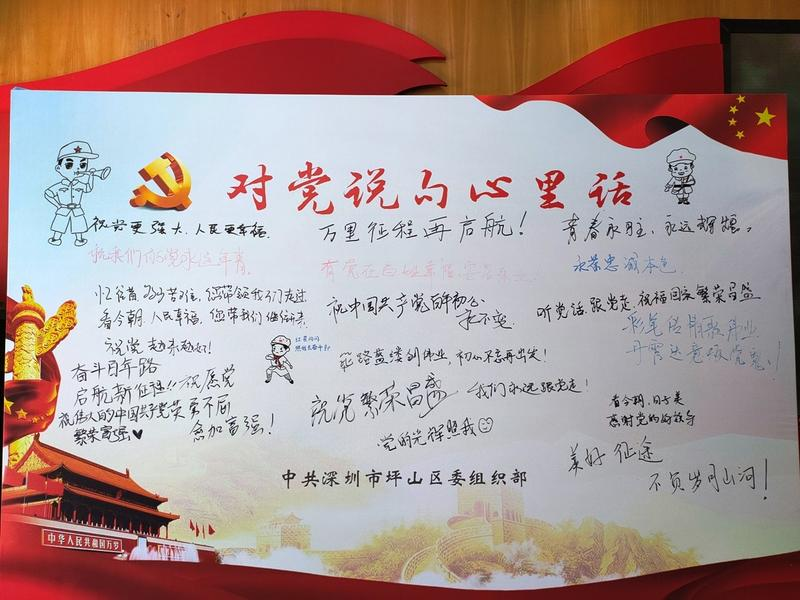 对党说句心里话
祝党更强大、人民更幸福
万里征程再启航！
青春永驻，永远辉煌。
祝我们的党永远年青
有党在百姓幸福
永葆忠诚本色
忆往昔
您带领我们走过
看今朝，人民幸福，您带我们继续
祝党越来越好！
祝中国共产党百年初心
永不变
听党话，跟党走，祝福国家繁荣昌盛
筚路蓝缕创伟业，初心不忘再出发！
奋斗百年路
启航新征程！！祝愿党
祝伟大的中国共产党英勇不屈
繁荣富强
愈加富强！
祝党繁荣昌盛
我们永远跟党走！
党的光辉照我
看今朝，日子美
感谢党的好领导
美好征途
不负岁月山河！
中共深圳市坪山区委组织部
中华人民共和国万岁